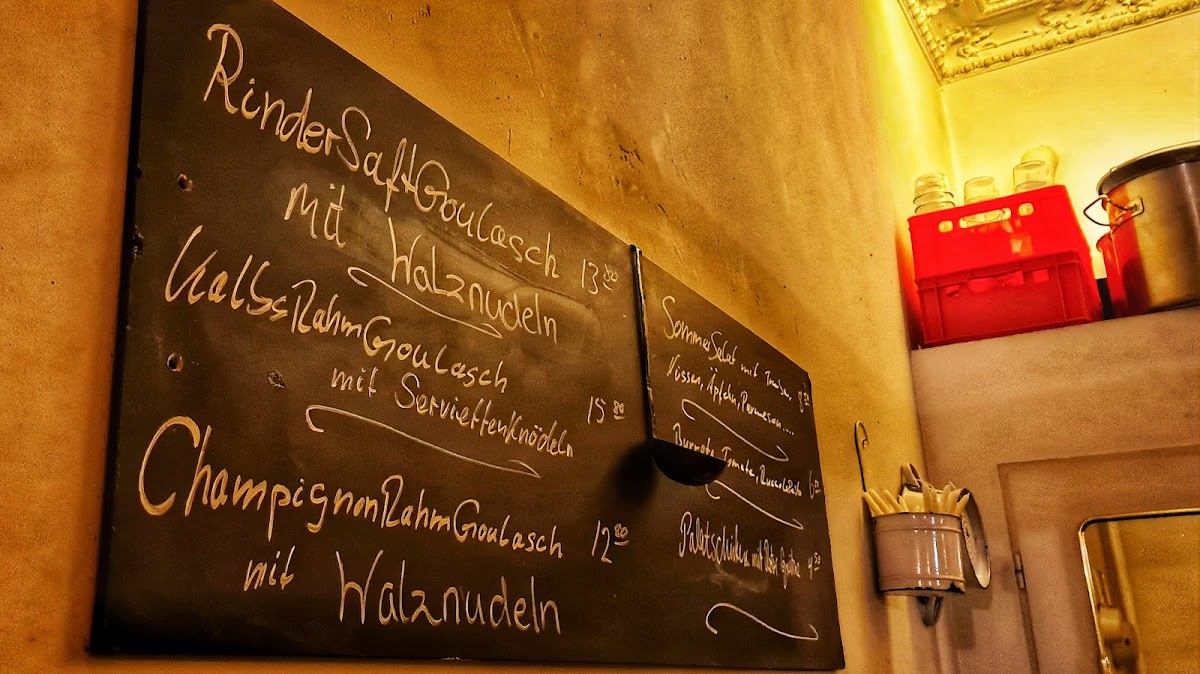 RinderSaftGoulasch
mit Walznudeln 13.80
KalbsRahmGoulasch
mit ServiettenKnödeln 15.80
ChampignonRahmGoulasch 12.80
mit Walznudeln
SommerSalat mit
Nüssen, Äpfeln, Parmesan....
Burrata, Tomate,
Palatschinken mit